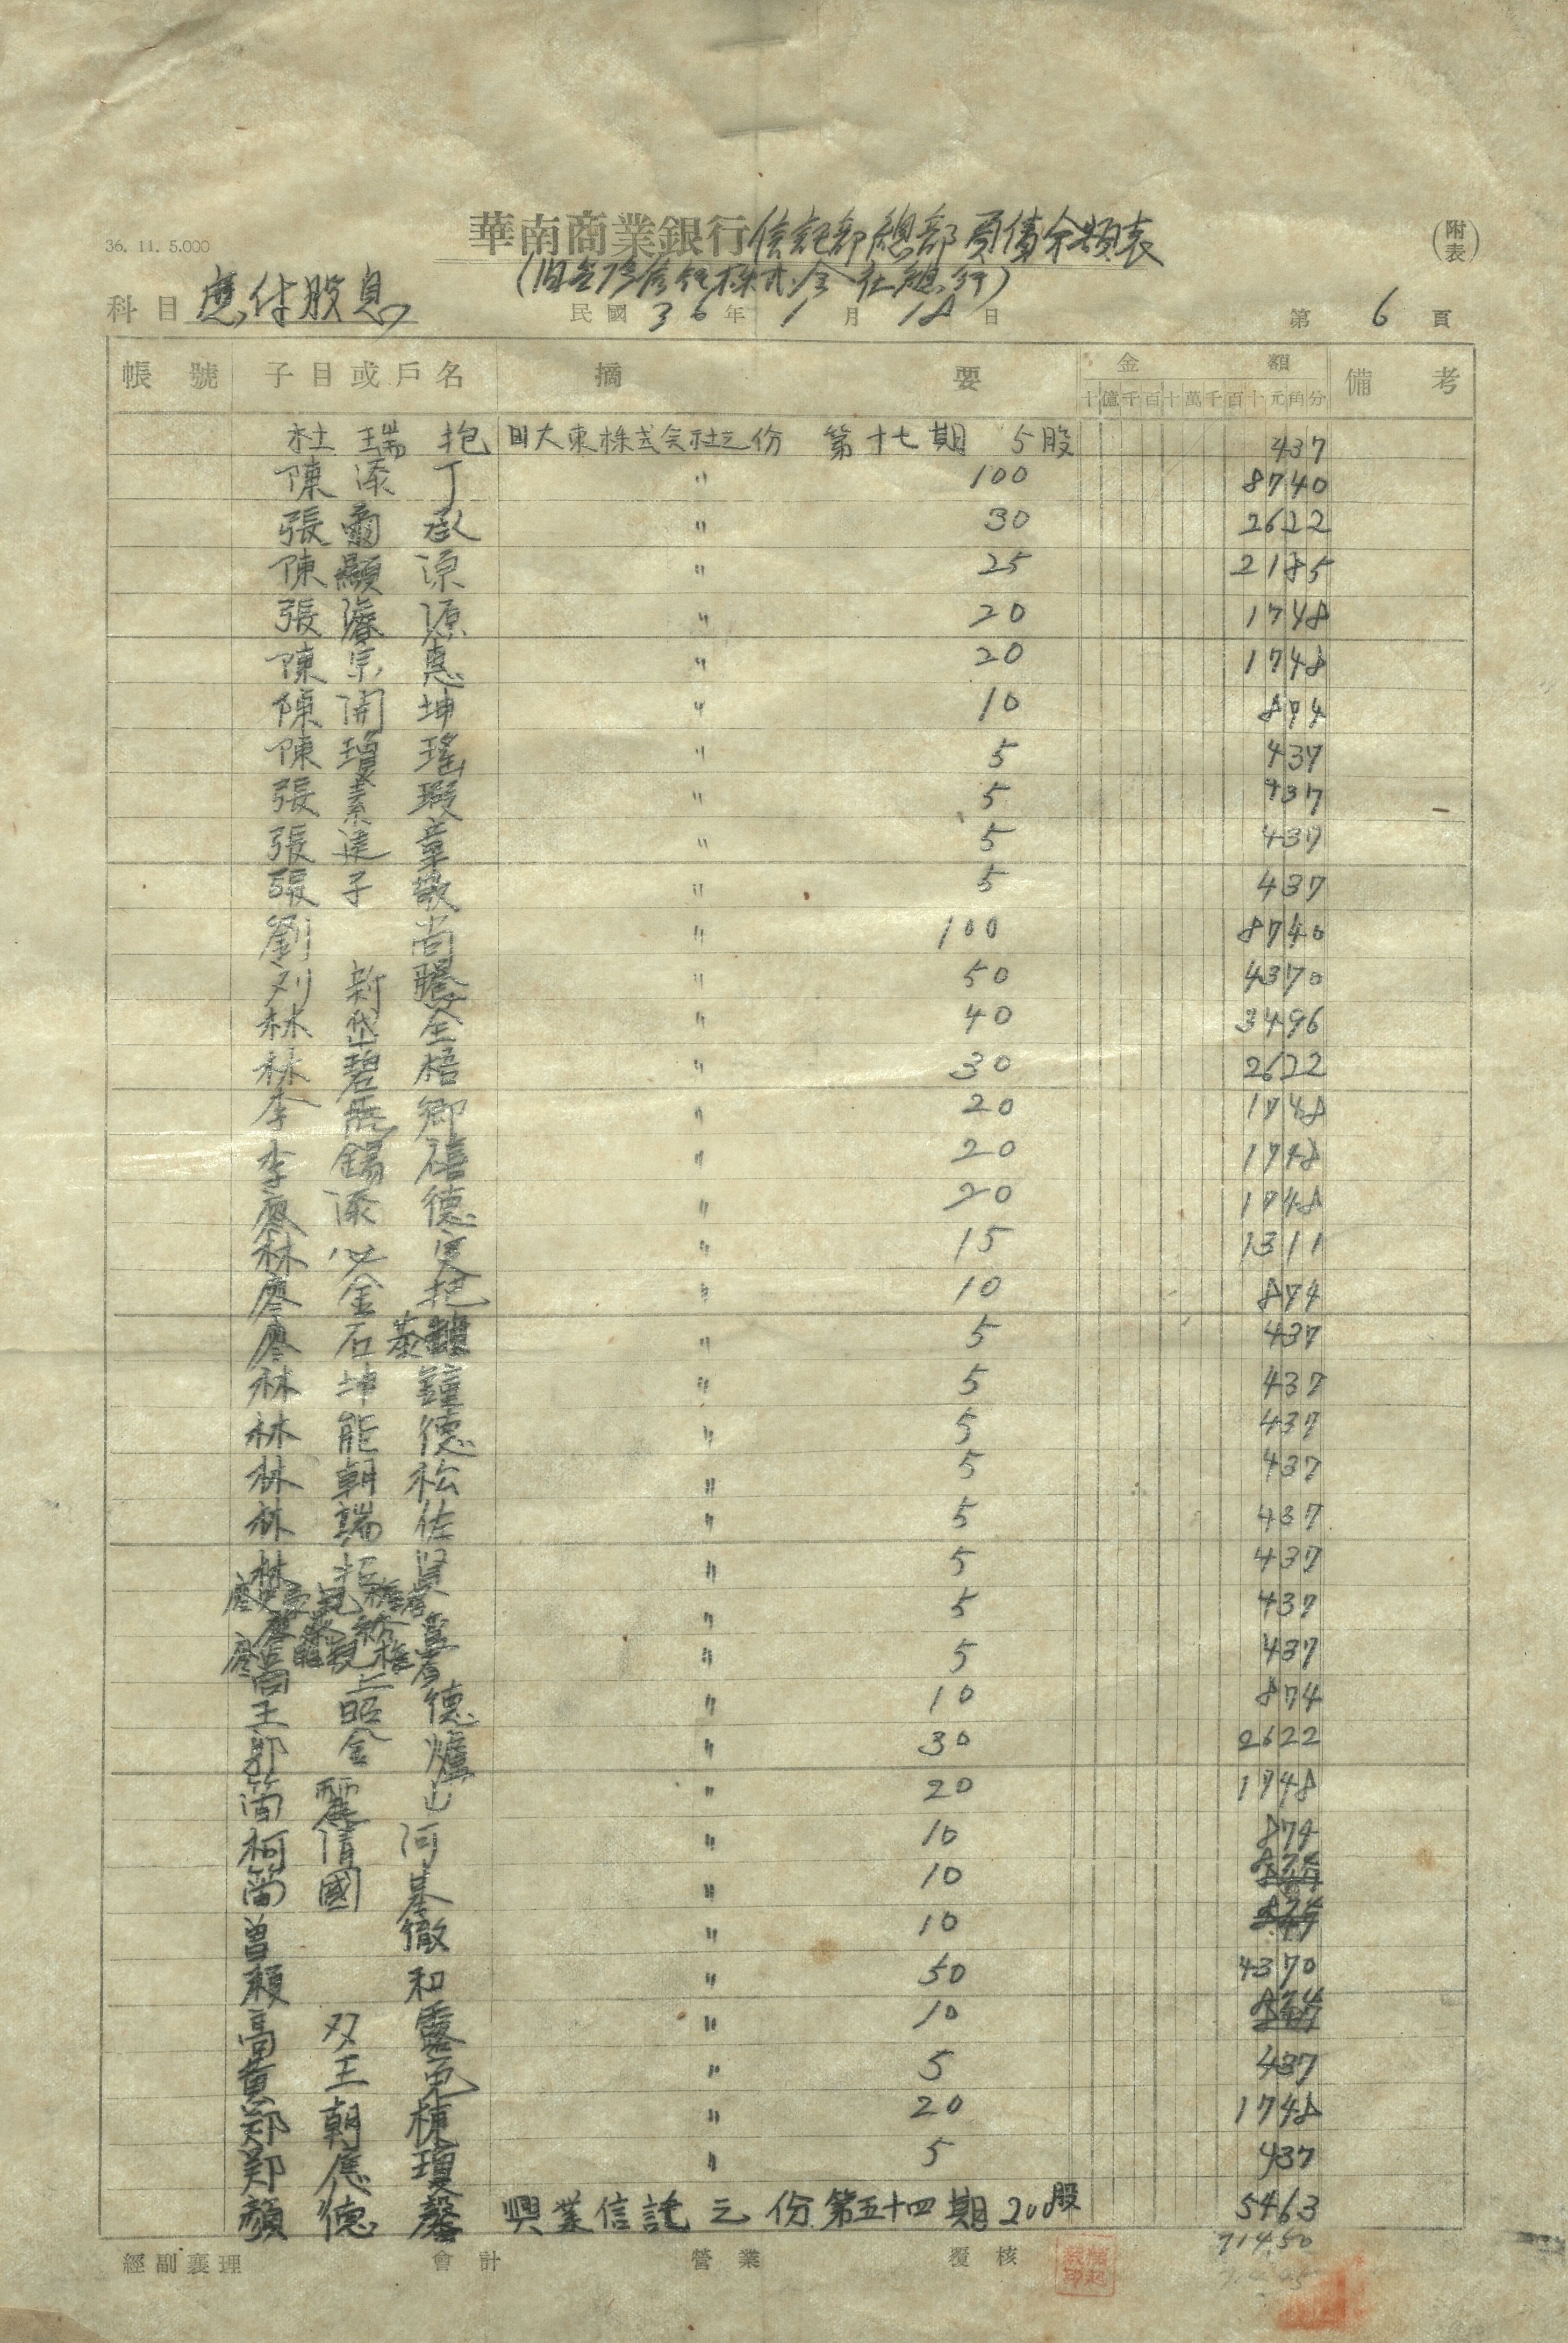 36. 11. 5.000
華南商業銀行信託部總部負債余額表
(附表)
科目 應付股息
民國 36 年 1 月 18 日
第 6 頁
帳號 子目或戶名 摘要 金額 備考
十億千百十萬千百十元角分
杜瑞抱 旧大東株式会社之份 第十七期 5股 437
陳添丁 " 100 8740
張 承 " 30 2622
陳顯源 " 25 2185
張濬源 " 20 1748
陳宗惠 " 20 1748
陳開坤 " 10 874
陳瓊瑤 " 5 437
張素瑕 " 5 437
張達章 " 5 437
張子敬 " 5 437
劉尚 " 100 8740
刘新 " 50 4370
林岱全 " 40 3496
林碧梧 " 30 2622
李 卿 " 20 1748
李錫禧 " 20 1748
廖添德 " 20 1748
林 " 15 1311
廖金把 " 10 874
廖石 " 5 437
林坤鐘 " 5 437
林能德 " 5 437
林朝松 " 5 437
林端佐 " 5 437
林 賢 " 5 437
" 5 437
" 5 437
王昭德 " 10 874
郭金爐 " 30 2622
簡麗山 " 20 1748
柯清河 " 10 874
簡國 " 10
曾徹 " 10
賴和 " 50 4370
高双露 " 10
黃王 " 5 437
郑朝棟 " 20 1748
鄭應瓊 " 5 437
顏德馨 興業信託之份 第五十四期 200股 5463
714.50
經副襄理 會計 營業 覆核